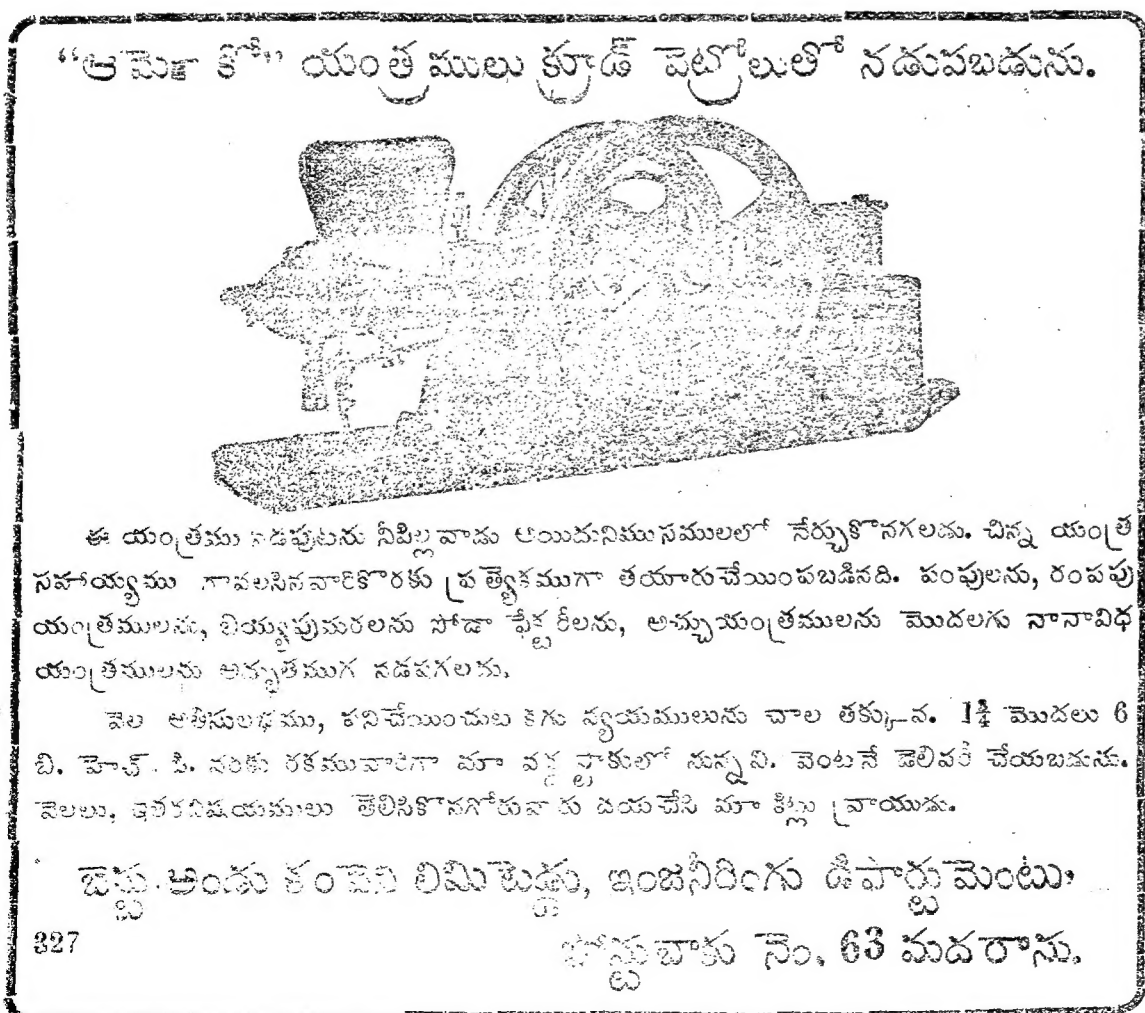 “ఆమెకో” యంత్రములు క్రూడ్ పెట్రోలుతో నడుపబడును.
ఈ యంత్రము నడపుటను నీపిల్లవాడు అయిదునిముసములలో నేర్చుకొనగలడు. చిన్న యంత్ర
సహాయ్యము గావలసినవారికొరకు ప్రత్యేకముగా తయారుచేయింపబడినది. పంపులను, రంపపు
యంత్రములను, బియ్యపుమరలను సోడా ఫేక్టరీలను, అచ్చుయంత్రములను మొదలగు నానావిధ
యంత్రములను అద్భుతముగ నడపగలదు.
వెల అతిసులభము, పనిచేయించుట కగు వ్యయములును చాల తక్కువ. 1¾ మొదలు 6
బి. హెచ్. పి. వరకు రకమువారిగా మా వద్ద స్టాకులో నున్నవి. వెంటనే డెలివరీ చేయబడును.
వెలలు, ఇతరవిషయములు తెలిసికొనగోరువారు దయచేసి మా కిట్లు వ్రాయుడు.
బెస్టు అండు కంపెని లిమిటెడ్డు, ఇంజనీరింగు డిపార్టుమెంటు,
327 పోస్టుబాకు నెం. 63 మదరాసు.